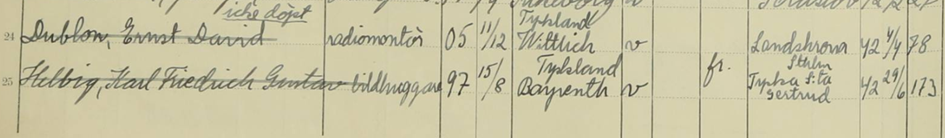 icke döpt Tyskland
24 Dublon, Ernst David radiomontör 05 11/12 Wittlich v Landskrona 42 4/4 78
Tyskland Sthlm
25 Helbig, Karl Friedrich Gustav bildhuggare 97 15/8 Bayreuth v fr. Tyska S:ta 42 29/6 173
Gertrud